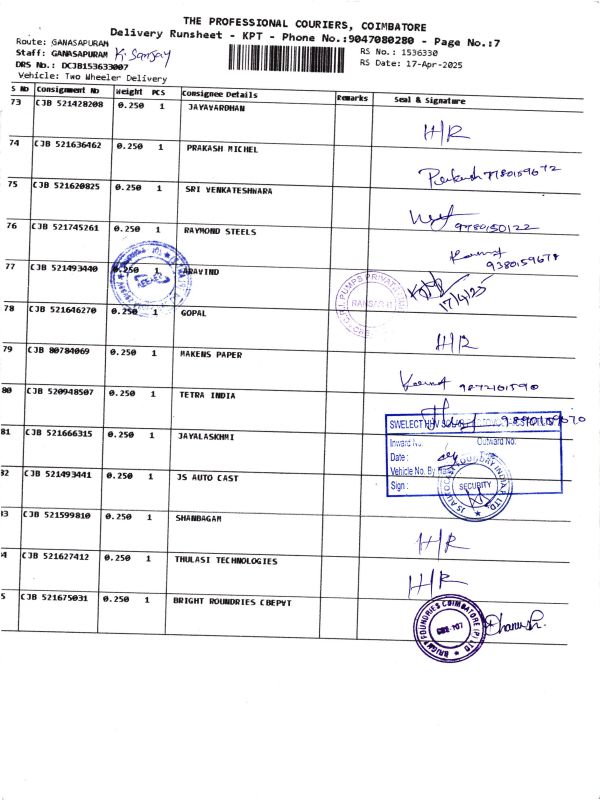 THE PROFESSIONAL COURIERS, COIMBATORE
Delivery Runsheet - KPT - Phone No.:9047080280 - Page No.:7
Route: GANASAPURAM
RS No.: 1536330
Staff: GANASAPURAM K. Sanjay
RS Date: 17-Apr-2025
DRS No.: DCJB153633007
Vehicle: Two Wheeler Delivery
S No Consignment No Weight PCS Consignee Details Remarks Seal & Signature
73 CJB 521428208 0.250 1 JAYAVARDHAN H/R
74 CJB 521636462 0.250 1 PRAKASH MICHEL Prakash 7780159672
75 CJB 521620825 0.250 1 SRI VENKATESHWARA 9780150122
76 CJB 521745261 0.250 1 RAYMOND STEELS 9380159678
77 CJB 521493440 0.250 1 ARAVIND 17/4/25
78 CJB 521646270 0.250 1 GOPAL H/R
79 CJB 80784069 0.250 1 MAKENS PAPER 9872101590
80 CJB 520948507 0.250 1 TETRA INDIA
SWELECT
Inward No. Outward No.
Date :
Vehicle No. By
Sign :
SECURITY
81 CJB 521666315 0.250 1 JAYALASKHMI
82 CJB 521493441 0.250 1 JS AUTO CAST
83 CJB 521599810 0.250 1 SHANBAGAM H/R
84 CJB 521627412 0.250 1 THULASI TECHNOLOGIES H/R
5 CJB 521675031 0.250 1 BRIGHT ROUNDRIES CBEPVT
BRIGHT FOUNDRIES COIMBATORE (P) LTD